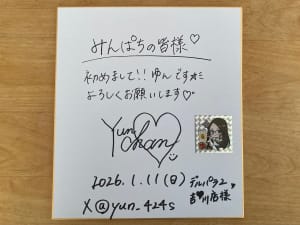 みんぱちの皆様♡
初めまして!!ゆんです☆ミ
よろしくお願いします♡
Yunchan
2026.1.11(日)
デルパラ2
吉川店様
X@yun_424s